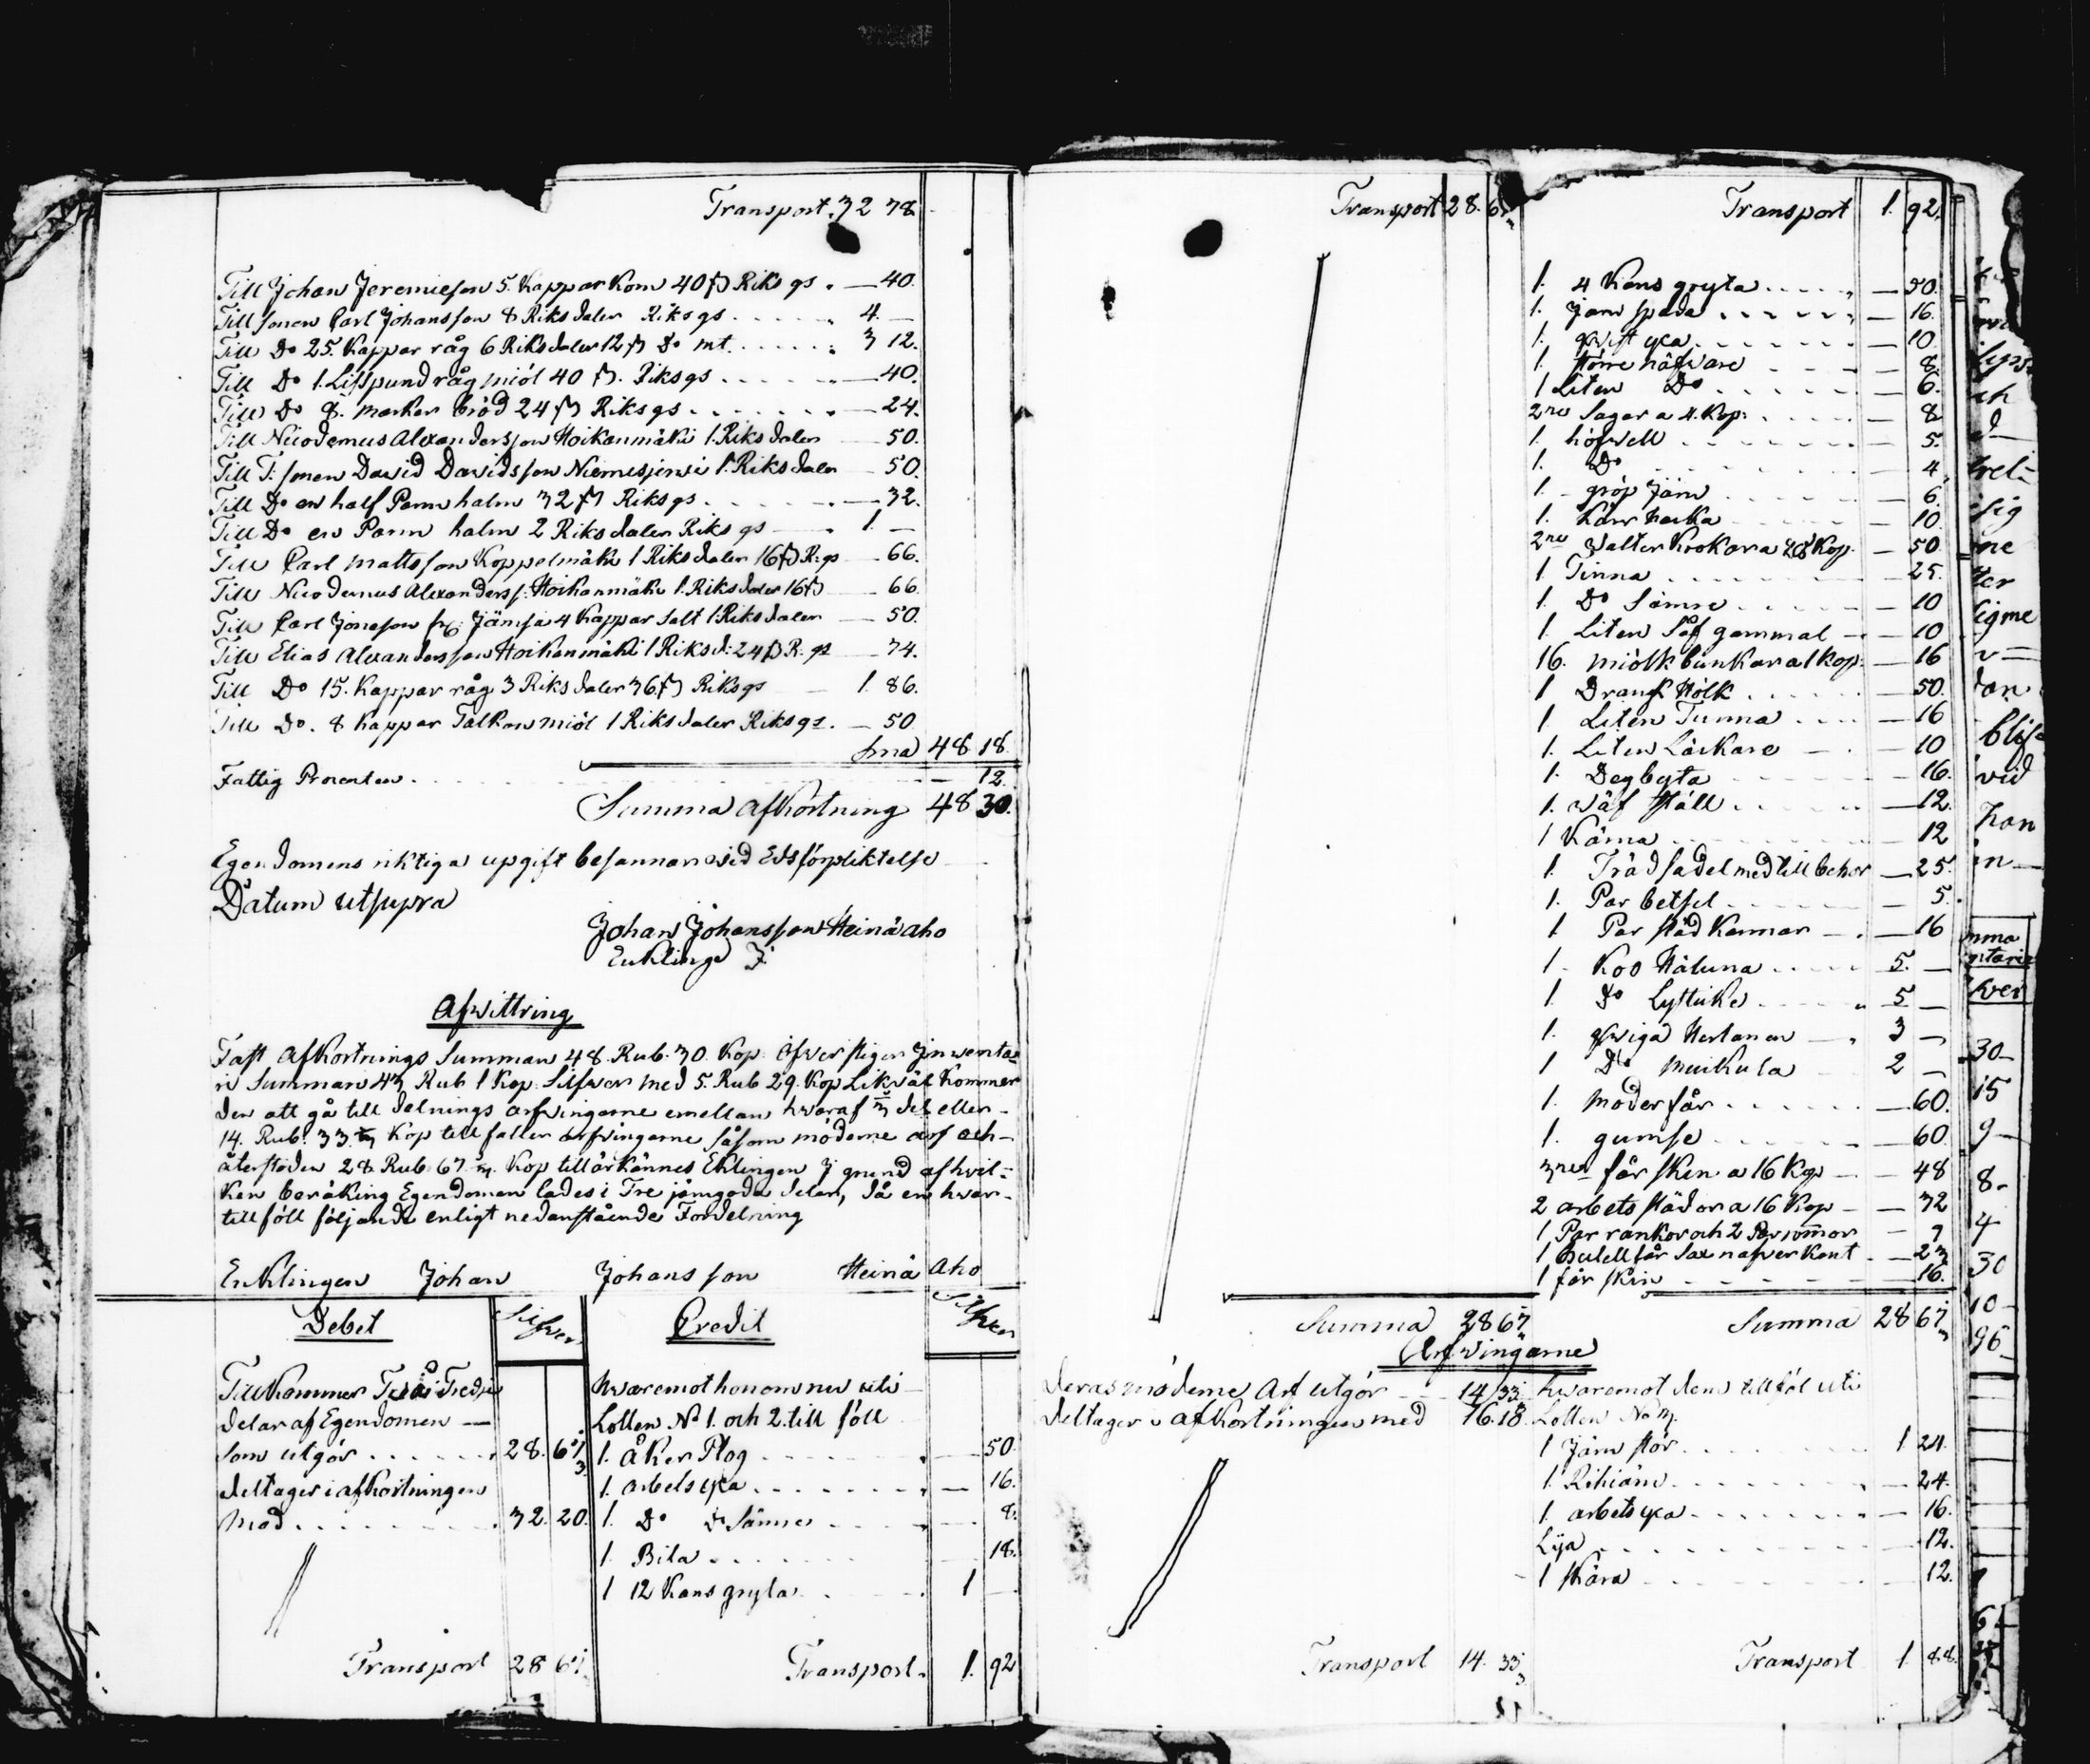 Transport. 32 78
Till Johan Jeremiesson 5. Kappar Korn 40 ß Riks gs. — 40.
Till sonen Carl Johansson 8 Riksdaler Riks gs . . . . . 4. —
Till Do 25. Kappar råg 6 Riksdaler 12 ß Do mt. . . . . . 3 12.
Till Do 1. Lisspund råg miöl 40 ß. Riks gs . . . . — 40.
Till Do 8. marker bröd 24 ß Riks gs . . . . . . — 24.
Till Nicodemus Alexandersson Hoikanmäki 1. Riksdaler — 50.
Till T: sonen David Davidsson Niemisjerwi 1. Riksdaler — 50.
Till Do en half Parm halm 32 ß Riks gs . . . . — 32.
Till Do en Parm halm 2 Riksdaler Riks gs — . 1. —
Till Carl Mattsson Koppelmäki 1 Riksdaler 16 ß R: gs — 66.
Till Nicodemus Alexanderss: Hoikanmäki 1. Riksdaler 16 ß — 66.
Till Carl Jonasson Jämsä 4 Kappar Salt 1. Riksdaler — 50.
Till Elias Alexandersson Hoikanmäki 1 Riksd: 24 ß R. gs — 74.
Till Do 15. Kappar råg 3 Riksdaler 36 ß Riks gs — 1. 86.
Till Do. 8 Kappar Talkon miöl 1 Riksdaler Riks gs. — 50
Sma 48 18.
Fattig Procenten . . . — 12.
Summa Afkortning 48 30.
Egendomens riktiga upgift besannar vid Edsförpliktelse
Datum utsupra
Johan Johansson Heinä aho
Enklinge
Afwittring
Fast Afkortnings Summan 48. Rub. 30. Kop. öfverstiger Inventa-
ri Summan 43 Rub 1 Kop. Silfver med 5. Rub 29. Kop Likväl Kommer
den att gå till delnings arfvingarne emellan hvaraf del eller -
14. Rub. 33. Kop tillfaller arfvingarne såsom möderne arf och -
återstoden 28 Rub 67 Kop tillärkännes Eklingen I grund af hvil-
ken beräking Egendomen lades i Tre jämgoda delar, då en hvar -
tillföll följande enligt nedanstående Fördelning
Enklingen Johan Johansson Heinä Aho
Debet Silfver Credit Silfver
Tillkommer Två Tredje
delar af Egendomen —
som utgör . . . . . . 28. 67
deltager i afkortningen
med . . . . . . . 32. 20.
Transport 28 67
hvaremot honom nu uti
Lotten No 1. och 2. till föll
1. Åker Plog . . . . — 50.
1. arbets yxa . . . . — 16.
1. Do Do Sämre . . . — 8.
1. Bila . . . . . — 18.
1 12 Kans gryta . . . 1 —
Transport. 1. 92
Transport 28. 67
Summa 28 67
Transport 1. 92.
1. 4 Kans gryta . . . . — 50.
1. Järn spada . . . . — 16.
1. qvist yxa . . . . . — 10.
1. större näfvare — 8.
1 Liten Do . . . . — 6.
2ne Sagar a 4. Kop: . . . — 8
1. höfvell . . . . — 5.
1. Do . . . . — 4
1. gröp Järn . . . . — 6.
1. Korn hacka — 10
2ne Kop. — 50
1 Tinna . . . . — 25.
1. Do Sämre . . . . — 10
1. Liten Såf gammal — 10
16. miölk bunkar a 1 Kop. — 16
1 Drank Hölk . . . . — 50.
1 Liten Tunna . . . — 16
1. Liten Läckare — . — 10
1. Degbyta . . . . — 16.
1. Wäf ställ . . . . — 12.
1 Kärna . . . . — 12
1. Trädsadel med tillbehör — 25.
1. Par betsel . . . . — 5.
1 Par städ Kannor — . — 16
1. Koo Håluna . . . . 5. —
1. Do Lystiike . . . . 5 —
1. qwiga Hertanen — . 3 —
1 Do Muikula 2 —
1. Moder får . . . . — 60.
1. gumse . . . . — 60
3ne får sken a 16 Kop — — 48
2 arbets städor a 16 Kop — — 32
1 Par rankor och 2 Par — 7
1 Butell får Sax kont — 23
1 får skin — 16.
Summa 28 67
Arfvingarne
Deras möderne Arf utgör — 14 33
deltager i afkortningen med 16. 18
Transport 14. 33
hvaremot dem tillföl uti
Lotten No 3.
1 Järn stör . . . . 1 24.
1. Rihiäm . . . . — 24.
1. arbets yxa . . . . — 16.
Lija . . . . — 12.
1 Skära . . . . — 12.
Transport 1. 88.